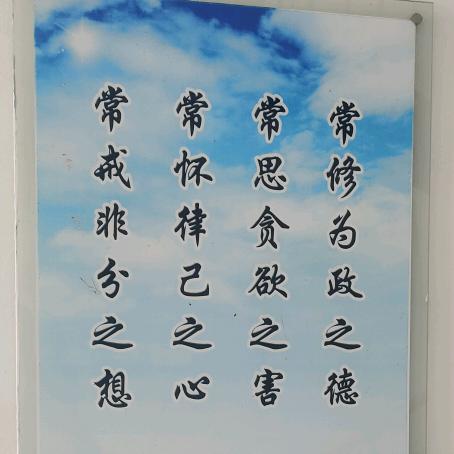 常修为政之德
常思贪欲之害
常怀律己之心
常戒非分之想